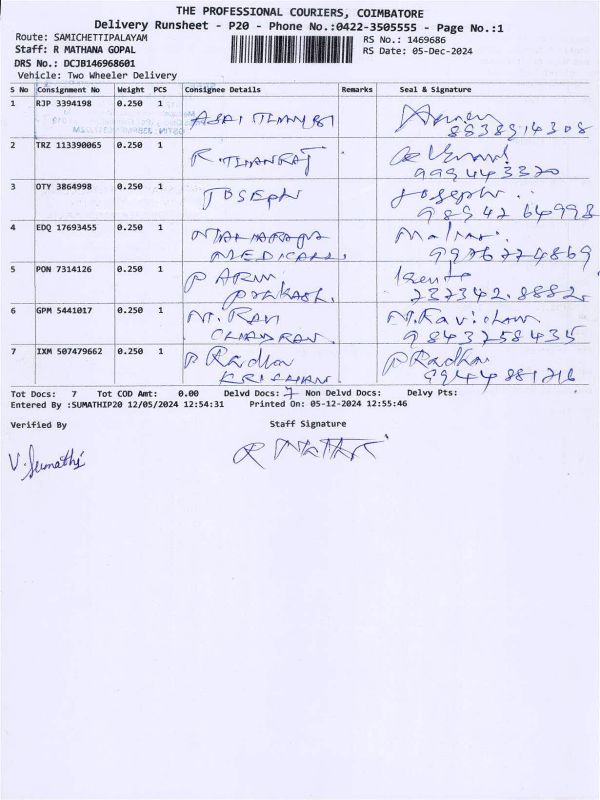 THE PROFESSIONAL COURIERS, COIMBATORE
Delivery Runsheet - P20 - Phone No.:0422-3505555 - Page No.:1
Route: SAMICHETTIPALAYAM
RS No.: 1469686
Staff: R MATHANA GOPAL
RS Date: 05-Dec-2024
DRS No.: DCJB146968601
Vehicle: Two Wheeler Delivery
S No Consignment No Weight PCS Consignee Details Remarks Seal & Signature
1 RJP 3394198 0.250 1
2 TRZ 113390065 0.250 1 R. THANRAJ
999443320
3 OTY 3864998 0.250 1 JOSEPH Joseph
98942 64998
4 EDQ 17693455 0.250 1
MEDICALS. 9976774869
5 PON 7314126 0.250 1 P ARUN
PRAKASH. 737342.8882
6 GPM 5441017 0.250 1 M. RAVI M.Ravichan
CHANDRAN. 9843758435
7 IXM 507479662 0.250 1 P Radha P Radha
KRISHNAN 99444881216
Tot Docs: 7 Tot COD Amt: 0.00 Delvd Docs: 7 Non Delvd Docs: Delvy Pts:
Entered By :SUMATHIP20 12/05/2024 12:54:31 Printed On: 05-12-2024 12:55:46
Verified By Staff Signature
V. Sumathi